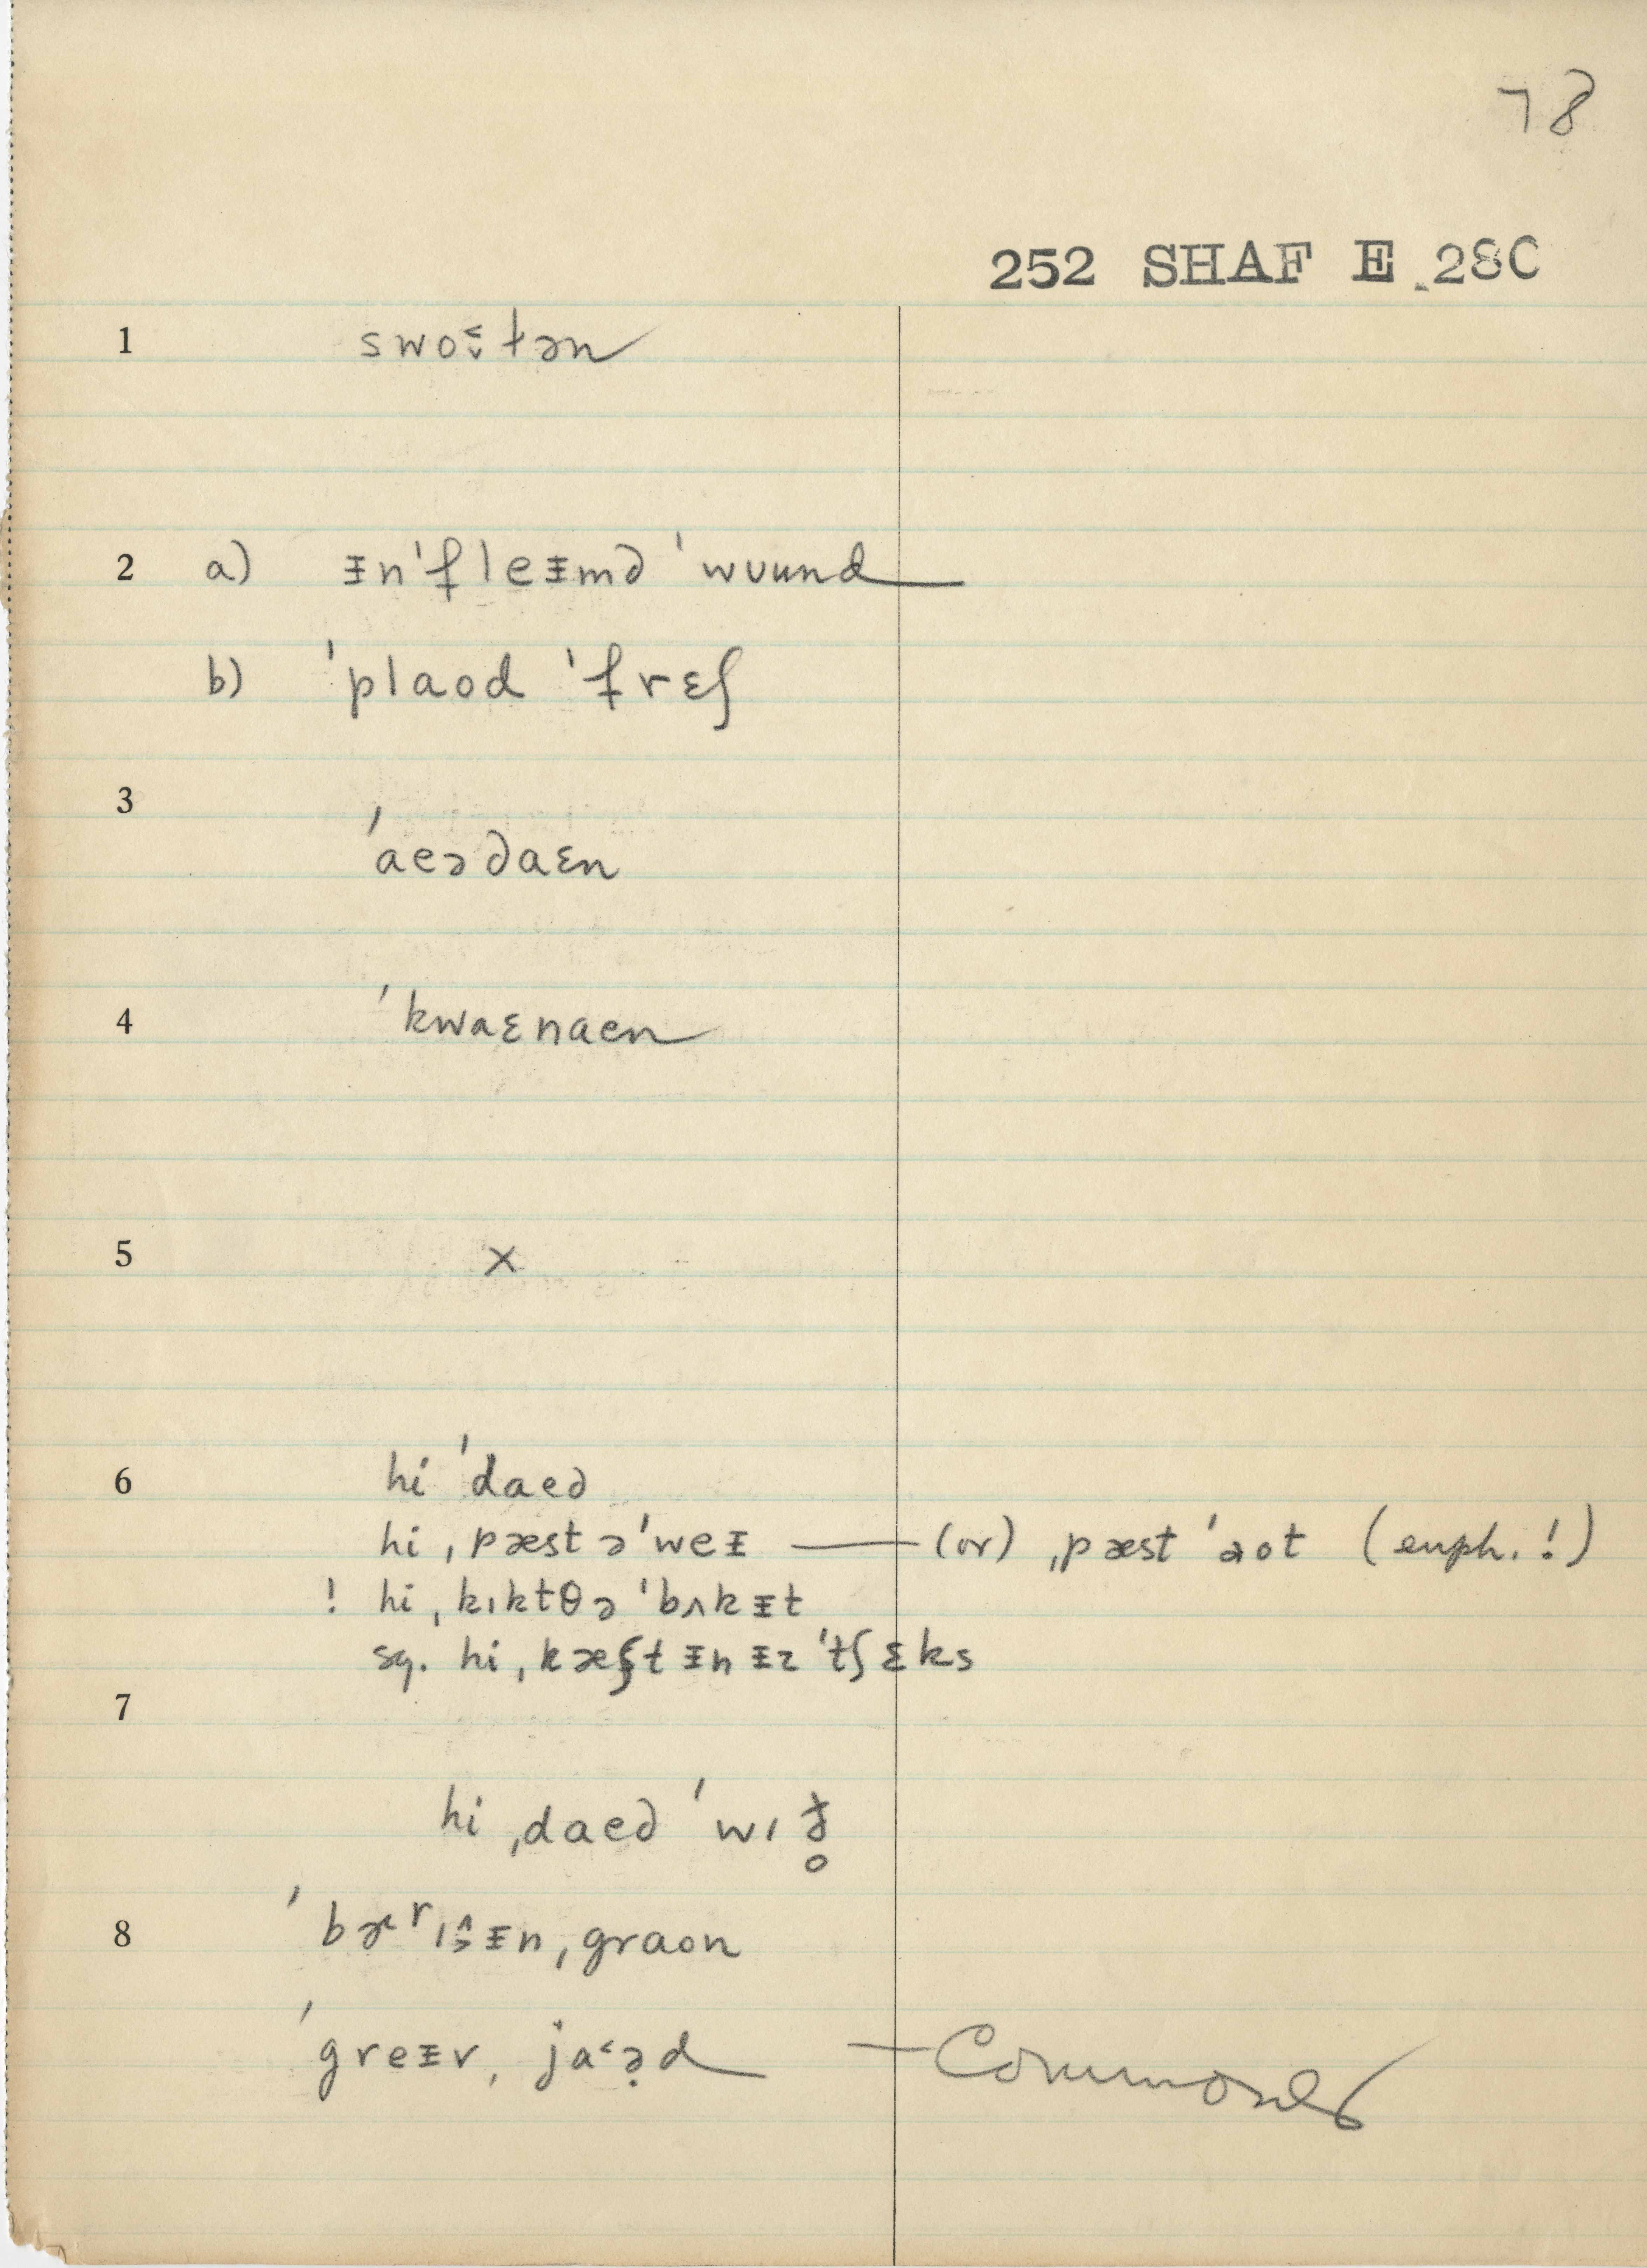 78
252 SHAF E 28C
1 swo˂̬ɫən
2 a) ᵻn'fleᵻmd 'wuund
b) 'plaod 'frɛʃ
3
'aeɚdaɛn
4 'kwaɛnaen
5 x
6 hi 'daed
hi ˌpæst ə'weᵻ — (or) ˌpæst 'aot (euph.!)
! hi ˌkɪktðə 'bʌkᵻt
sq. hi ˌkæʃt ᵻn ᵻz 'tʃɛks
7
hi ˌdaed 'wɪð̥
8 'bɚrɪᵻn ˌgraon
'greᵻv ˌja˂ɚd — Common